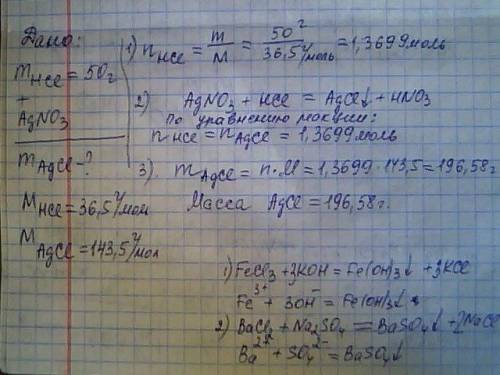 Дано:
m HCl = 50г
+
AgNO₃
m AgCl - ?
M HCl = 36,5 г/мол
M AgCl = 143,5 г/мол
1) n HCl = m/M = 50г/36,5 г/моль = 1,3699 моль
2) AgNO₃ + HCl = AgCl↓ + HNO₃
по уравнению реакции:
n HCl = n AgCl = 1,3699 моль
3). m AgCl = n·M = 1,3699 · 143,5 = 196,58г
Масса AgCl = 196,58г.
1) FeCl₃ + 3KOH = Fe(OH)₃↓ + 3KCl
Fe³⁺ + 3OH⁻ = Fe(OH)₃↓
2) BaCl₂ + Na₂SO₄ = BaSO₄↓ + 2NaCl
Ba²⁺ + SO₄²⁻ = BaSO₄↓